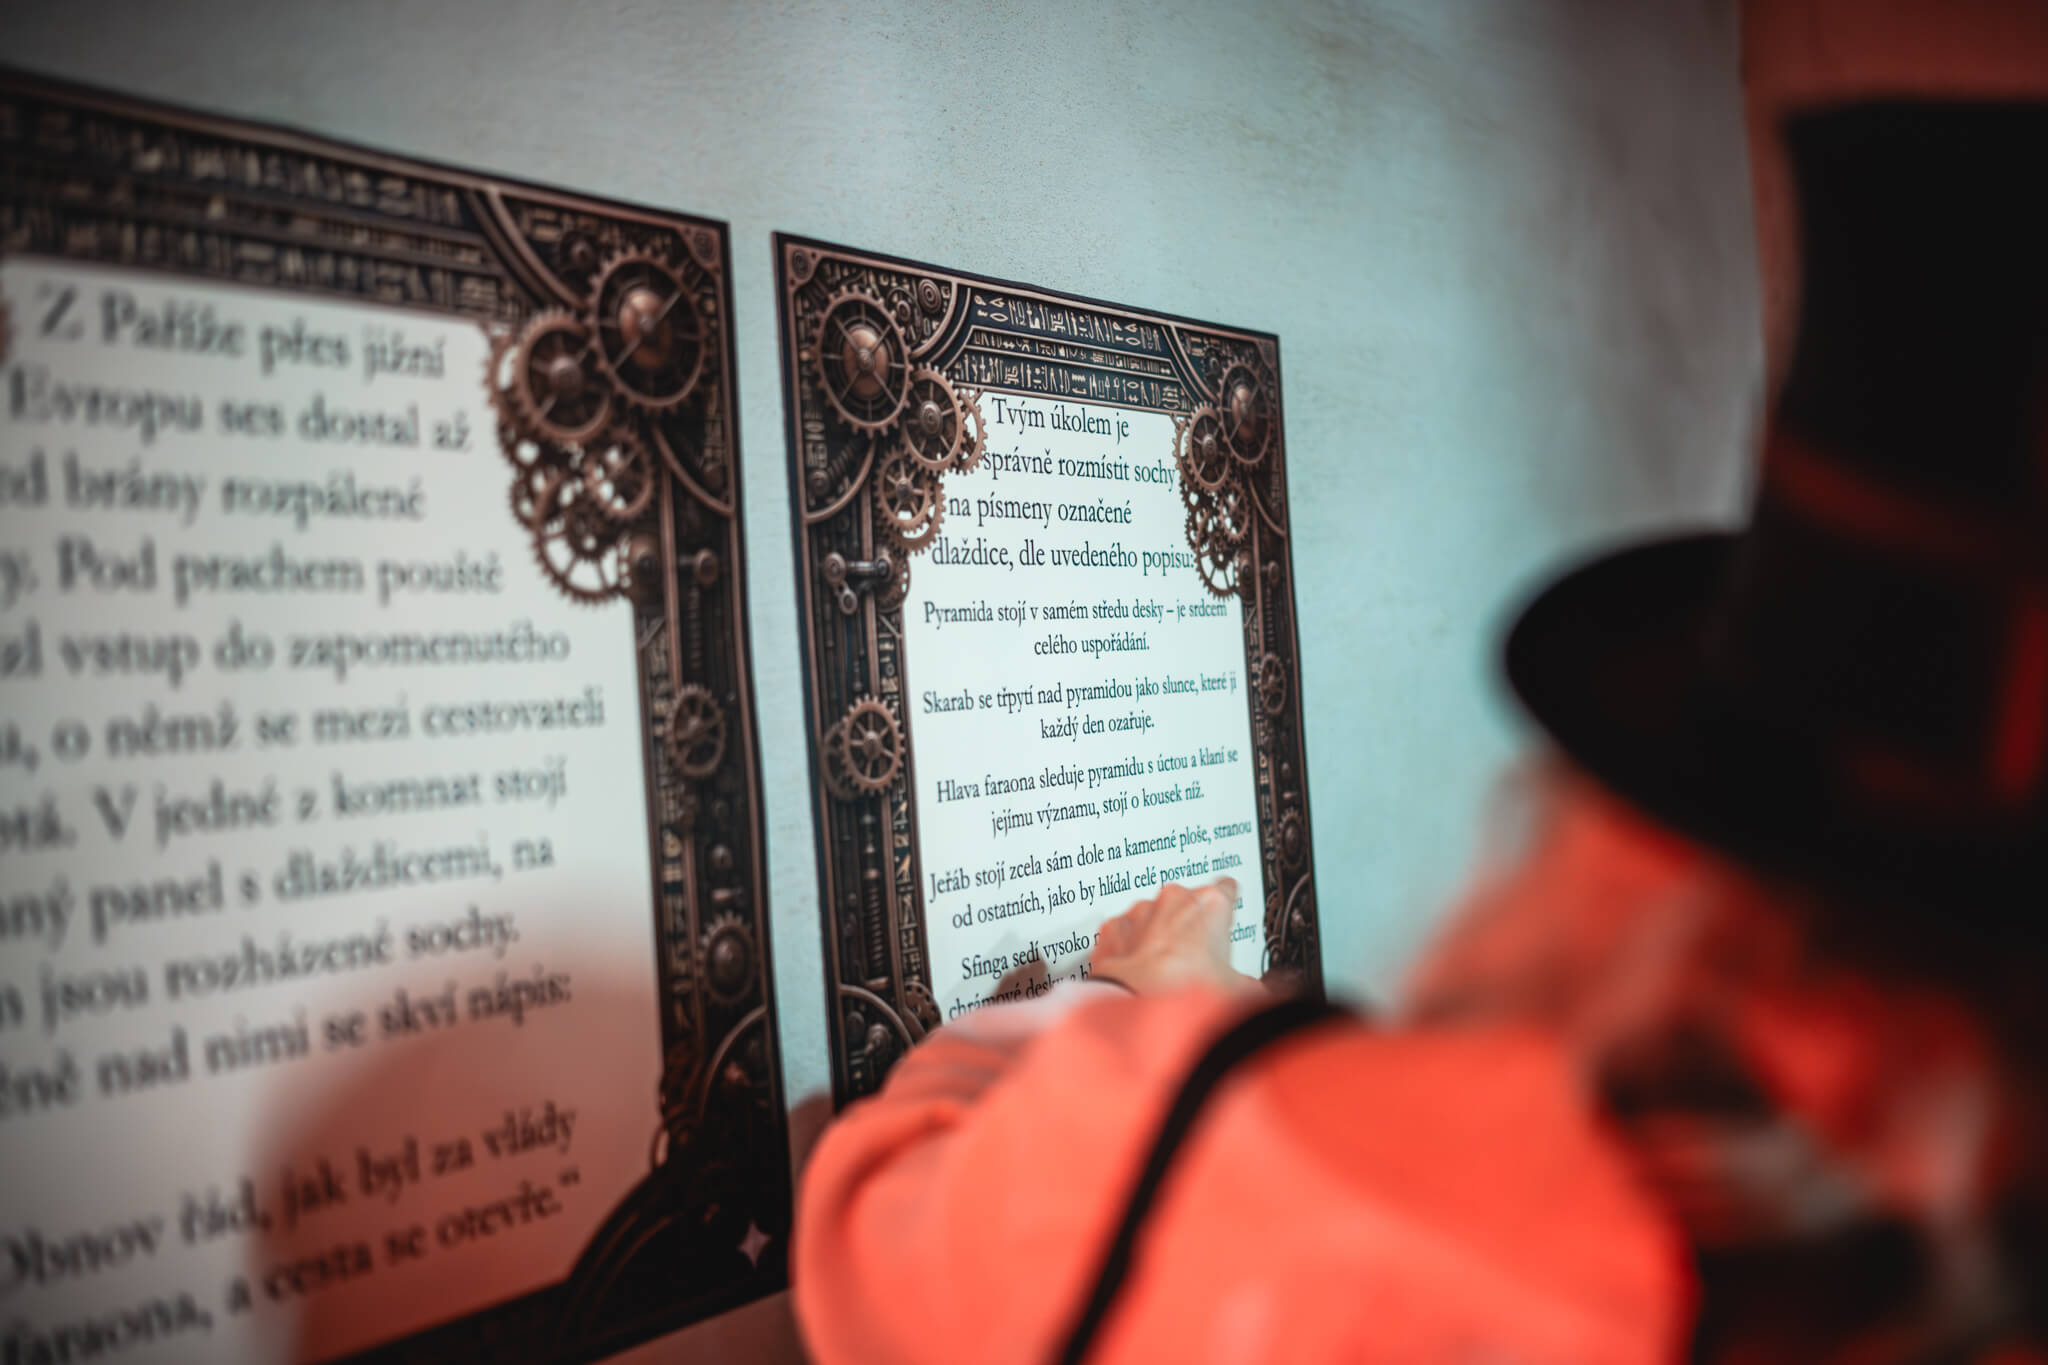 Z Paříže přes jižní
Evropu ses dostal až
brány rozpálené
Pod prachem pouště
vstup do zapomenutého
o němž se mezi cestovateli
V jedné z komnat stojí
panel s dlaždicemi, na
jsou rozházené sochy.
nad nimi se skví nápis:
Obnov řád, jak byl za vlády
faraona, a cesta se otevře.“
Tvým úkolem je
správně rozmístit sochy
na písmeny označené
dlaždice, dle uvedeného popisu:
Pyramida stojí v samém středu desky – je srdcem
celého uspořádání.
Skarab se třpytí nad pyramidou jako slunce, které ji
každý den ozařuje.
Hlava faraona sleduje pyramidu s úctou a klaní se
jejímu významu, stojí o kousek níž.
Jeřáb stojí zcela sám dole na kamenné ploše, stranou
od ostatních, jako by hlídal celé posvátné místo.
Sfinga sedí vysoko
chrámové desky a